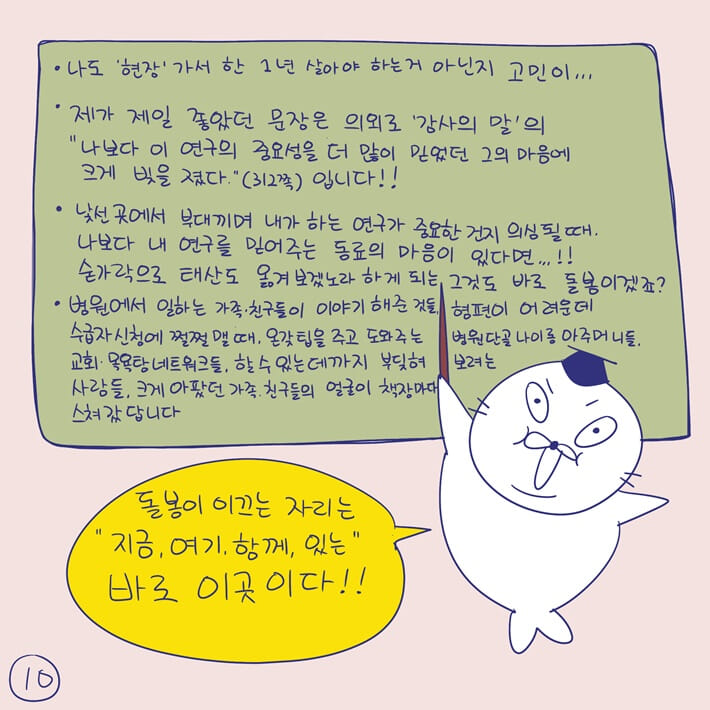 • 나도 '현장' 가서 한 1년 살아야 하는거 아닌지 고민이...
• 제가 제일 좋았던 문장은 의외로 '감사의 말'의
"나보다 이 연구의 중요성을 더 많이 믿었던 그의 마음에
크게 빚을 졌다." (312쪽) 입니다!!
• 낯선 곳에서 부대끼며 내가 하는 연구가 중요한 건지 의심될 때.
나보다 내 연구를 믿어주는 동료의 마음이 있다면...!!
숟가락으로 태산도 옮겨보겠노라 하게 되는 그것도 바로 돌봄이겠죠?
• 병원에서 일하는 가족·친구들이 이야기 해준 것들, 형편이 어려운데
수급자신청에 쩔쩔맬 때, 온갖 팁을 주고 도와주는 병원단골 나이롱 아주머니들,
교회·목욕탕 네트워크들, 할 수 있는데까지 부딪혀 보려는
사람들, 크게 아팠던 가족·친구들의 얼굴이 책장마다
스쳐갔답니다
돌봄이 이끄는 자리는
"지금, 여기, 함께, 있는"
바로 이곳이다!!
10